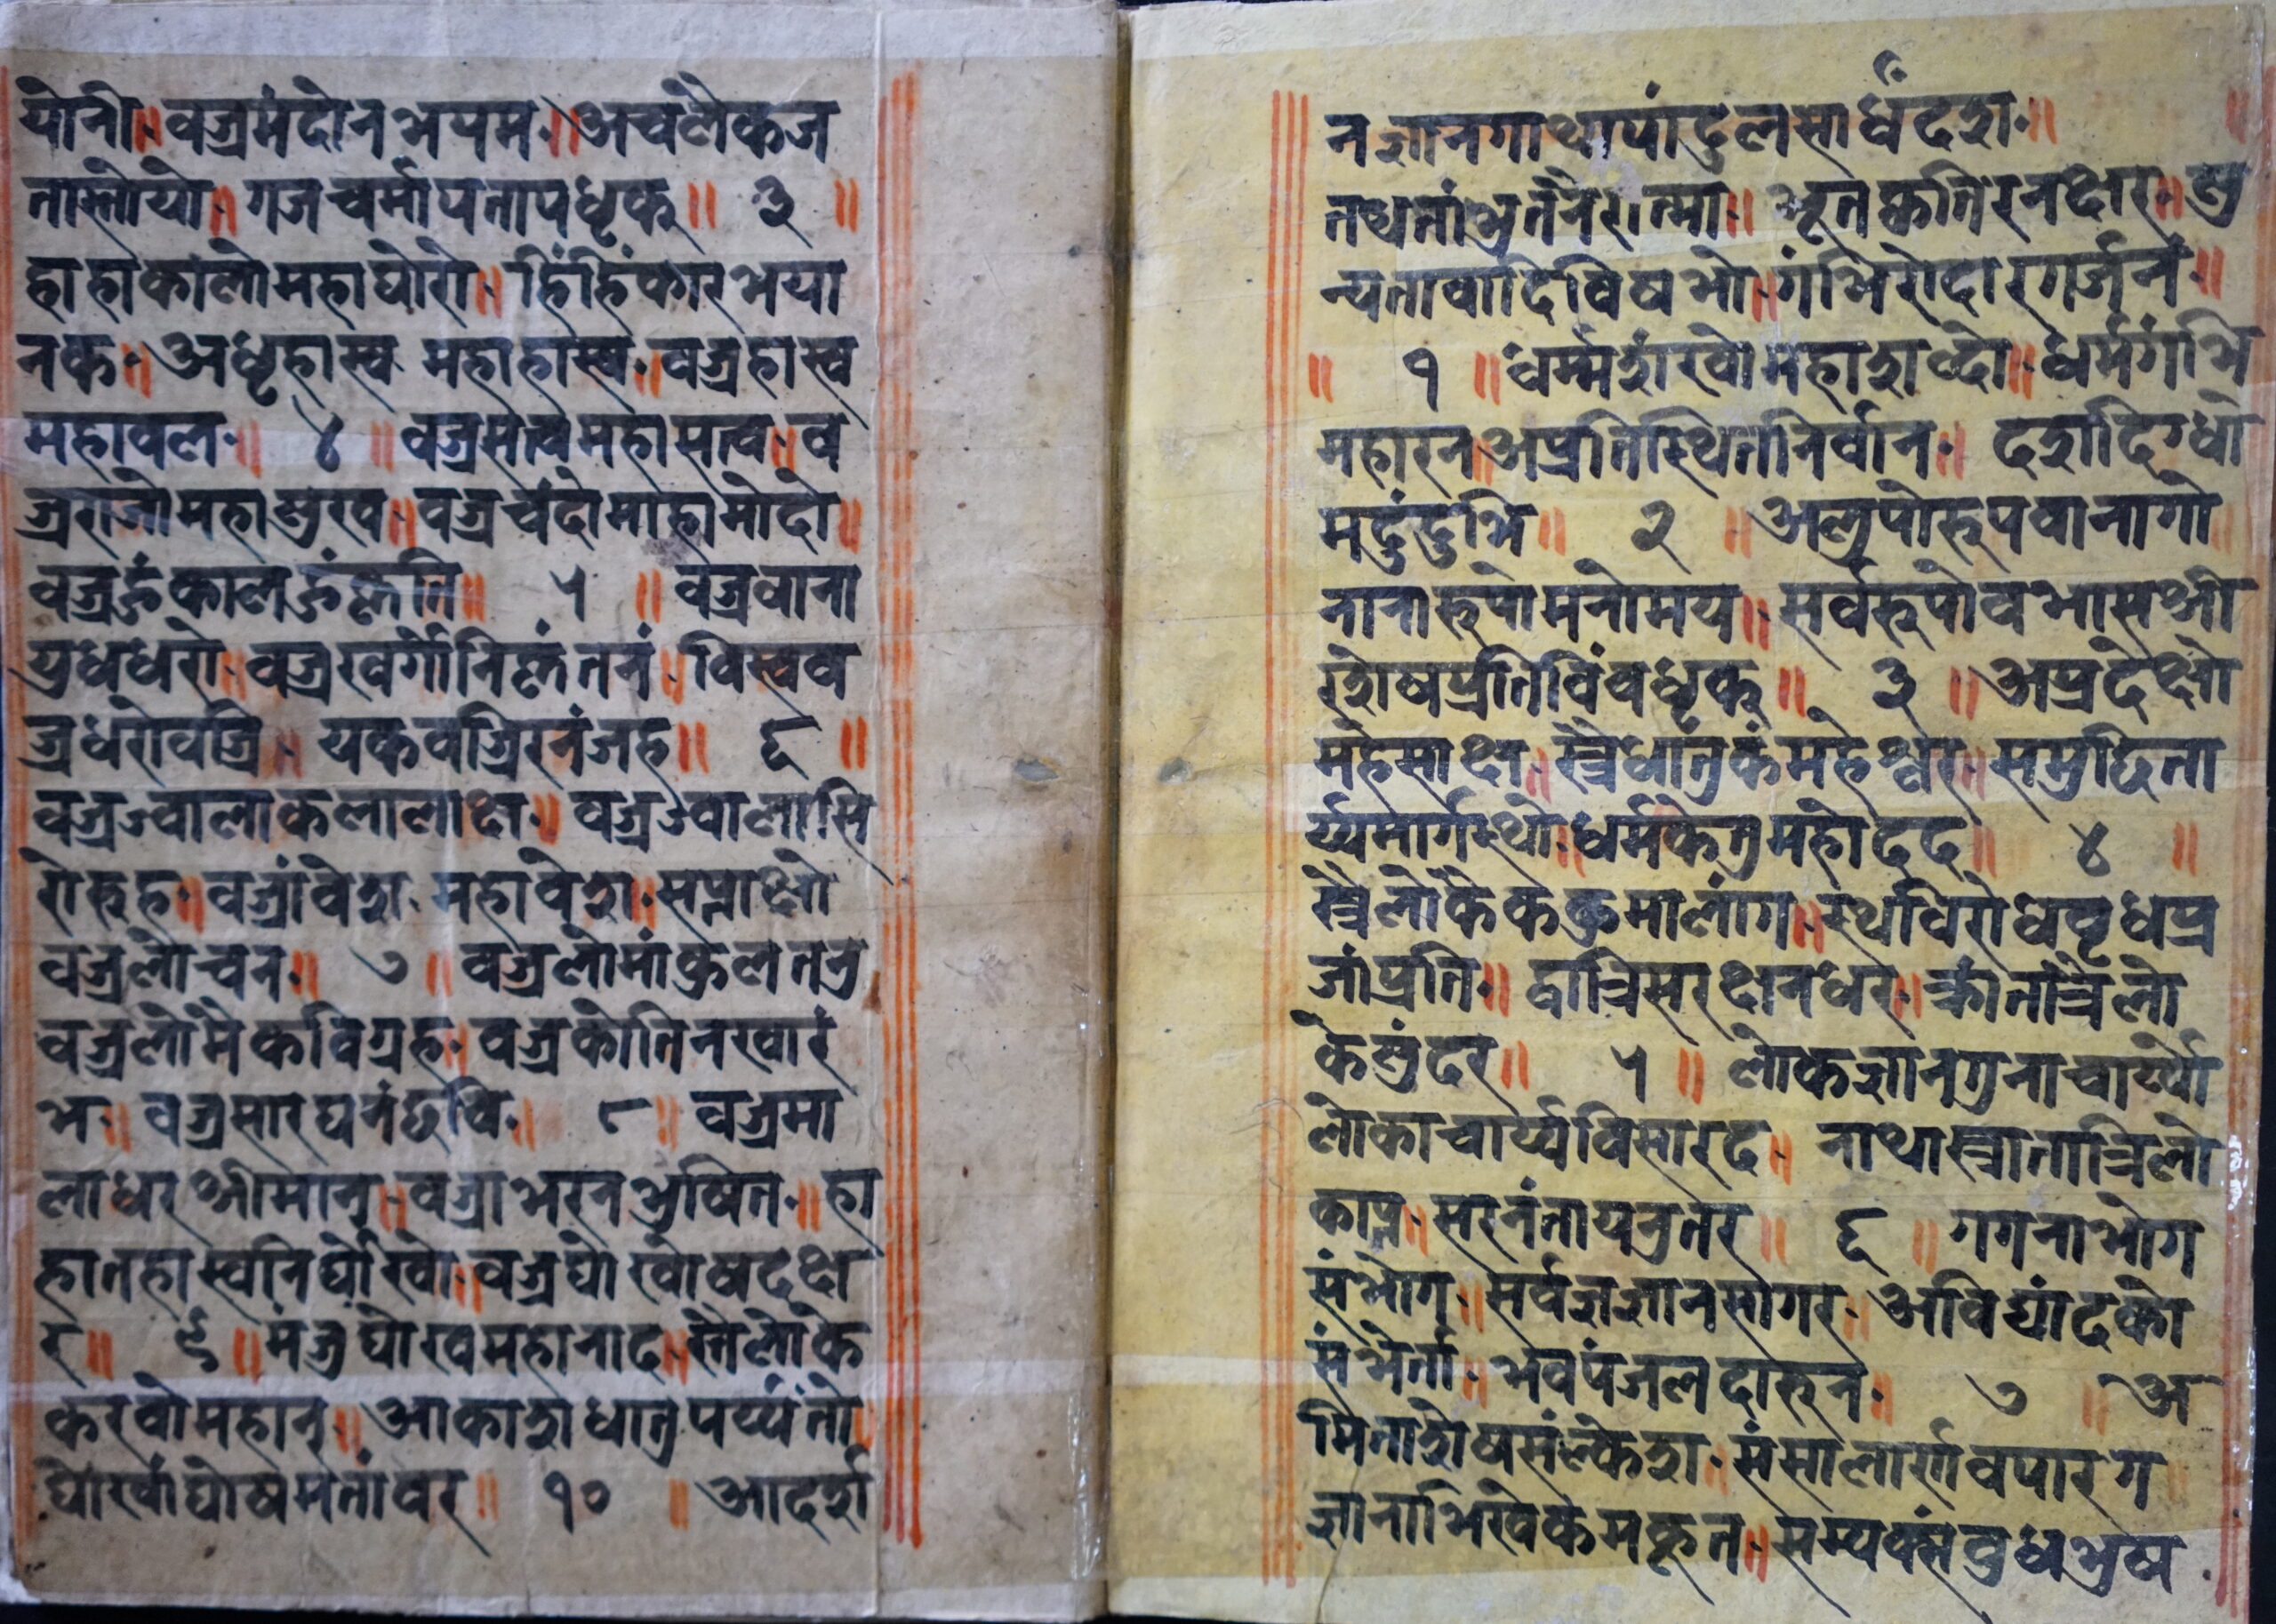 योनी॥वज्रमंदोनभयम॥अचलैकज
तास्तोयो॥गजचर्मापतापधृक्॥ ३ ॥
हाहाकालोमहाघोरो॥हिंहिंकारभया
नक॥अधृहास्व महाहास्व॥वज्रहास्व
महावल॥ ४ ॥वज्रसत्वमहासत्व॥व
ज्रराजोमहासुख॥वज्रचंदोमाहामोदो॥
वज्रहुँकालहुँकृति॥ ५ ॥ वज्रवाना
युधधरो॥वज्रखर्गोनिकृंतनं॥विस्वव
ज्रधरोवज्रि॥यकवज्रिरनंजह॥ ६ ॥
वज्रज्वालाकलालाक्ष॥वज्रज्वालासि
रोरुह॥वज्रावेश महावेश॥सप्ताक्षो
वज्रलोचन॥ ७ ॥वज्रलोमांकुलतनु
वज्रलोमैकविग्रह॥वज्रकोतिनखारं
भ॥वज्रसारघनंछवि॥ ८ ॥ वज्रमा
लाधरश्रीमान्॥वज्राभरनभुषित॥हा
हातहास्वनिर्घोखो॥वज्रघोखोषदक्ष
र॥ ९ ॥मंजुघोखमहानाद॥स्त्रैलोके
करवोमहान्॥आकाशधातुपर्य्यंतो॥
घोखोघोषमतांवर॥ १० ॥ आदर्श
९
नज्ञानगाथापांदुलसार्धंदश॥
तथतांभुतनैरात्मा॥भूतकृतिरनक्षर॥शु
न्यतावादिविषभो॥गंभिरोदारगर्जनं॥
॥ १ ॥धर्म्मशंखोमहाशब्दो॥धर्मगंभि
महारन॥अप्रतिस्थितनिर्वान॥दशदिग्धो
मदुंदुभि॥ २ ॥अलुपोरूपवानागो
नानारूपोमनोमय॥सर्वरूपोवभासश्री
रशेषप्रतिविंवधृक्॥ ३ ॥अप्रदेक्षो
महेसाक्ष॥स्त्रैधातुकंमहेश्वर॥समुछिता
र्य्यमार्गस्थो॥धर्मकेतुमहोदद॥ ४ ॥
स्त्रैलोकैककुमालांग॥स्थविरोधवृधप्र
जांप्रति॥द्वात्रिसरक्षनधर॥क्रांतांत्रैलो
केसुंदर॥ ५ ॥ लोकज्ञानगुनाचार्य्यो
लोकाचार्य्यविसारद॥ नाथास्त्रातात्रिलो
काप्त॥सरनंतायनुतर॥ ६ ॥गगनाभोग
संभोग॥सर्वज्ञज्ञानसागर॥अविद्यांदको
संभेर्ता॥भवपंजलदारुन॥ ७ ॥अ
मिताशेषसंल्केश॥संसालार्णवपारग
ज्ञानाभिखेकमकूत॥सम्यक्संवुधभुष